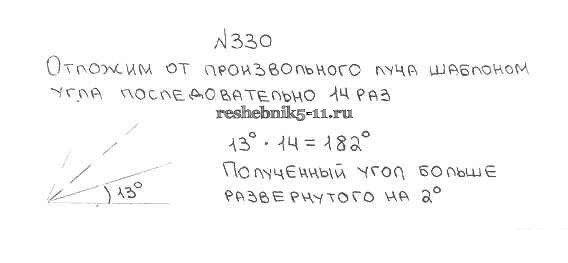 №330
Отложим от произвольного луча шаблоном
угла последовательно 14 раз
reshebnik5-11.ru
13° · 14 = 182°
Полученный угол больше
развернутого на 2°
13°